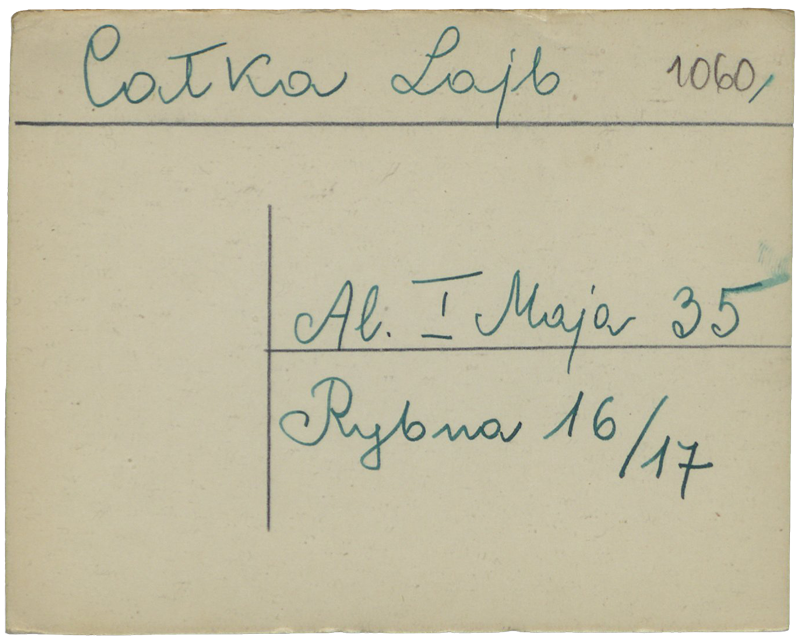 Całka Lajb 1060,
Al. I Maja 35
Rybna 16/17